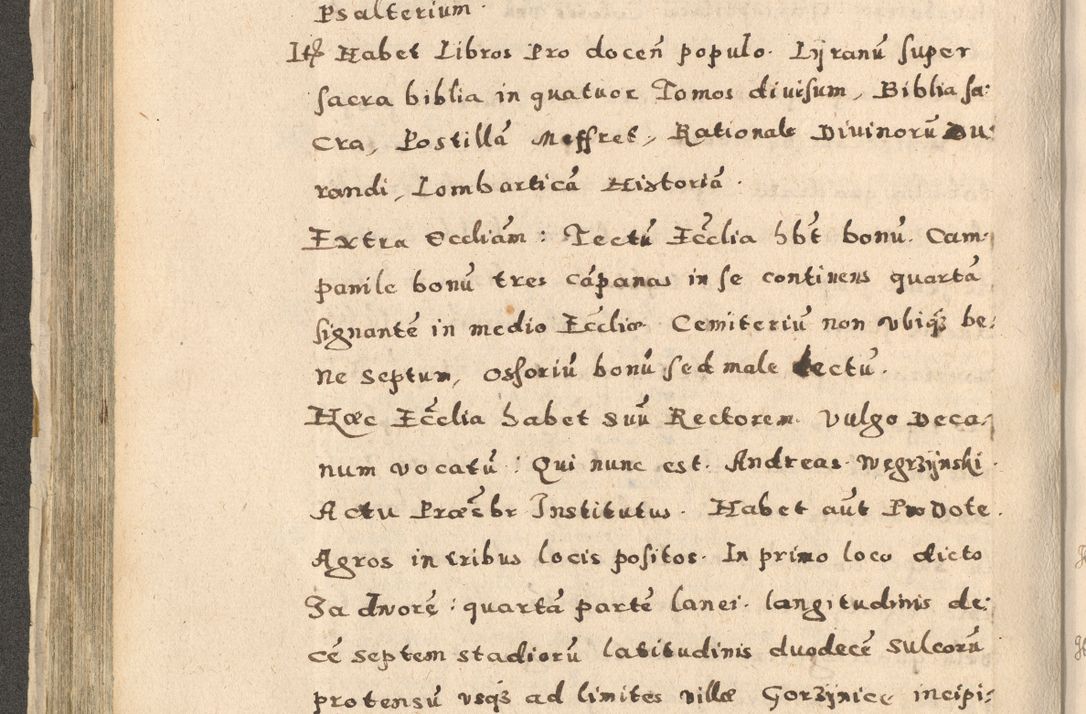 Psalterium.
Itẽ Habet Libros Pro doceñ populo. Lÿranũ super
sacra biblia in quatuor Tomos diuisum, Biblia sa:
cra, Postillã Meffret, Rationale Diuinorũ Du:
randi, Lombarticã Historiã.
Extra Eccliam̃: Tectũ Ecc̃lia hbt̃ bonũ. Cam:
panile bonũ tres cãpanas in se continens quartã
signantẽ in medio Ecc̃liæ Cemiteriũ non vbiqȝ be:
ne septum, Ossoriũ bonũ sed male tectũ.
Hæc Ecc̃lia habet suũ Rectorem. Vulgo Deca:
num vocatũ: Qui nunc est. Andreas Wegrzÿnski.
Actu Præsb̃r Institutus. Habet aut̃ Pro Dote.
Agros in tribus locis positos. In primo loco dicto
Za dworẽ: quartã partẽ lanei. langitudinis de:
cẽ septem stadiorũ latitudinis duodecẽ sulcorũ
protensũ vsqȝ ad limites villæ Gorzÿnice incipi: